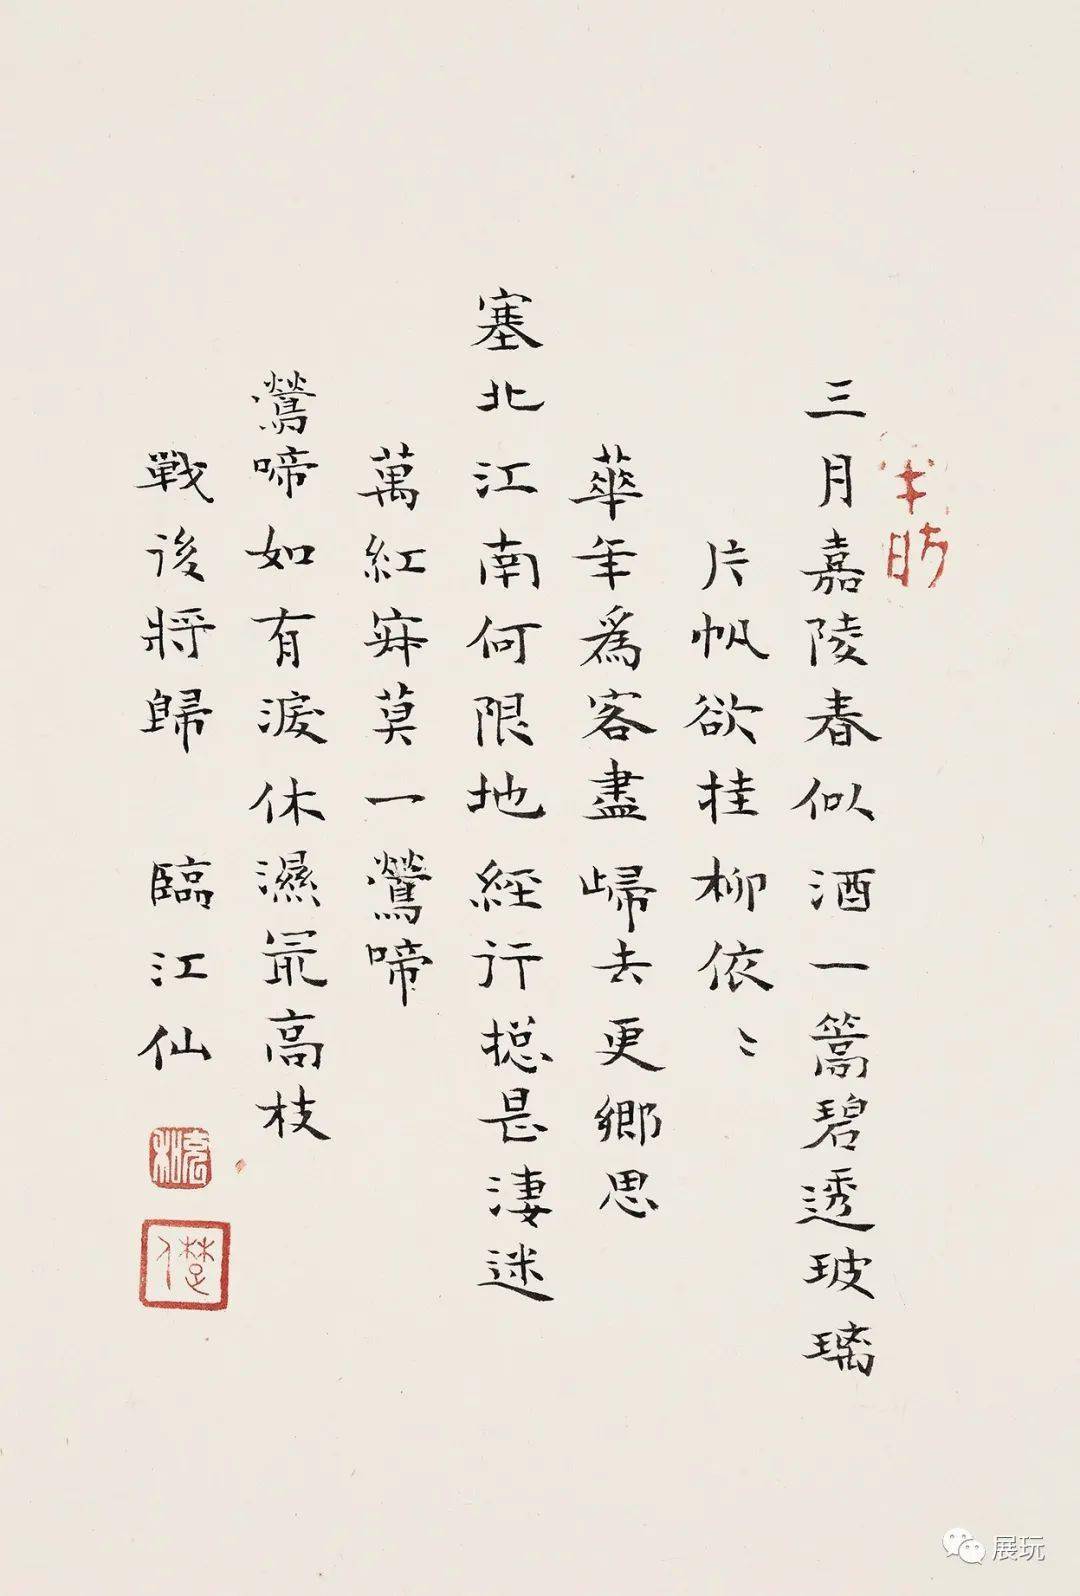 三月嘉陵春似酒一篙碧透玻璃
片帆欲挂柳依〻
華年爲客盡歸去更鄉思
塞北江南何限地經行摠是淒迷
萬紅寂莫一鶯啼
鶯啼如有淚休濕最高枝
戰後將歸 臨江仙
展玩